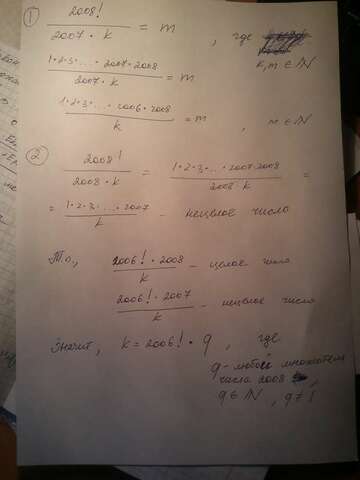 ① 2008! / 2007 · k = m , где k, m ∈ ℕ
1·2·3·...·2007·2008 / 2007·k = m
1·2·3·...·2006·2008 / k = m , m ∈ ℕ
② 2008! / 2008·k = 1·2·3·...·2007·2008 / 2008·k =
= 1·2·3·...·2007 / k - нецелое число
Т.о., 2006!·2008 / k - целое число
2006!·2007 / k - нецелое число
Значит, k = 2006!·q , где
q - любой множитель
числа 2008 ,
q ∈ ℕ , q ≠ 1